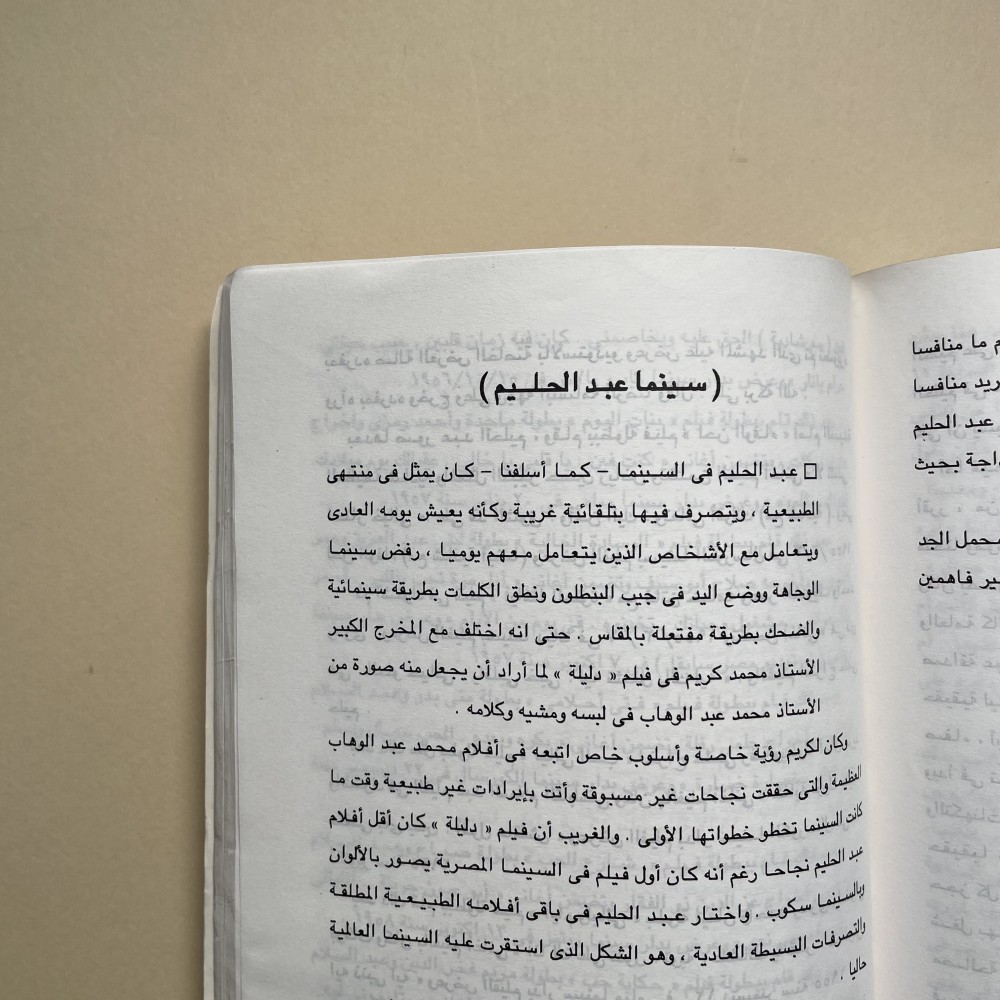 ( سينما عبد الحليم )
□ عبد الحليم فى السينما – كما أسلفنا – كان يمثل فى منتهى
الطبيعية ، ويتصرف فيها بتلقائية غريبة وكأنه يعيش يومه العادى
ويتعامل مع الأشخاص الذين يتعامل معهم يوميا ، رفض سينما
الوجاهة ووضع اليد فى جيب البنطلون ونطق الكلمات بطريقة سينمائية
والضحك بطريقة مفتعلة بالمقاس . حتى انه اختلف مع المخرج الكبير
الأستاذ محمد كريم فى فيلم « دليلة » لما أراد أن يجعل منه صورة من
الأستاذ محمد عبد الوهاب فى لبسه ومشيه وكلامه .
وكان لكريم رؤية خاصة وأسلوب خاص اتبعه فى أفلام محمد عبد الوهاب
العظيمة والتى حققت نجاحات غير مسبوقة وأتت بإيرادات غير طبيعية وقت ما
كانت السينما تخطو خطواتها الأولى . والغريب أن فيلم « دليلة » كان أقل أفلام
عبد الحليم نجاحا رغم أنه كان أول فيلم فى السينما المصرية يصور بالألوان
وبالسينما سكوب . واختار عبد الحليم فى باقى أفلامه الطبيعية المطلقة
والتصرفات البسيطة العادية ، وهو الشكل الذى استقرت عليه السينما العالمية
حاليا .
ما منافسا
منافسا
عبد الحليم
بحيث
محمل الجد
فاهمين